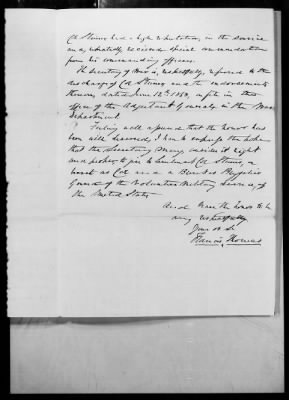 Col Stevens had a high reputation, in the service
and, repeatedly received special commendation
from his commanding officers.
The Secretary of War is, respectfully, referred to the
discharge of Col Stevens and to endorsements
thereon, dated June 12th 1863, on file in the
office of the Adjutant General, in the War
Department.
Feeling well assured that the honor has
been well deserved, I beg to express the hope
that the Secretary may consider it right
and proper to give to Lieutenant Col Stevens, a
brevet as Col and a Brevet as Brigadier
General of the Volunteer Military Service, of
the United States
And have the honor to be
very respectfully
Your ob St
Francis Thomas